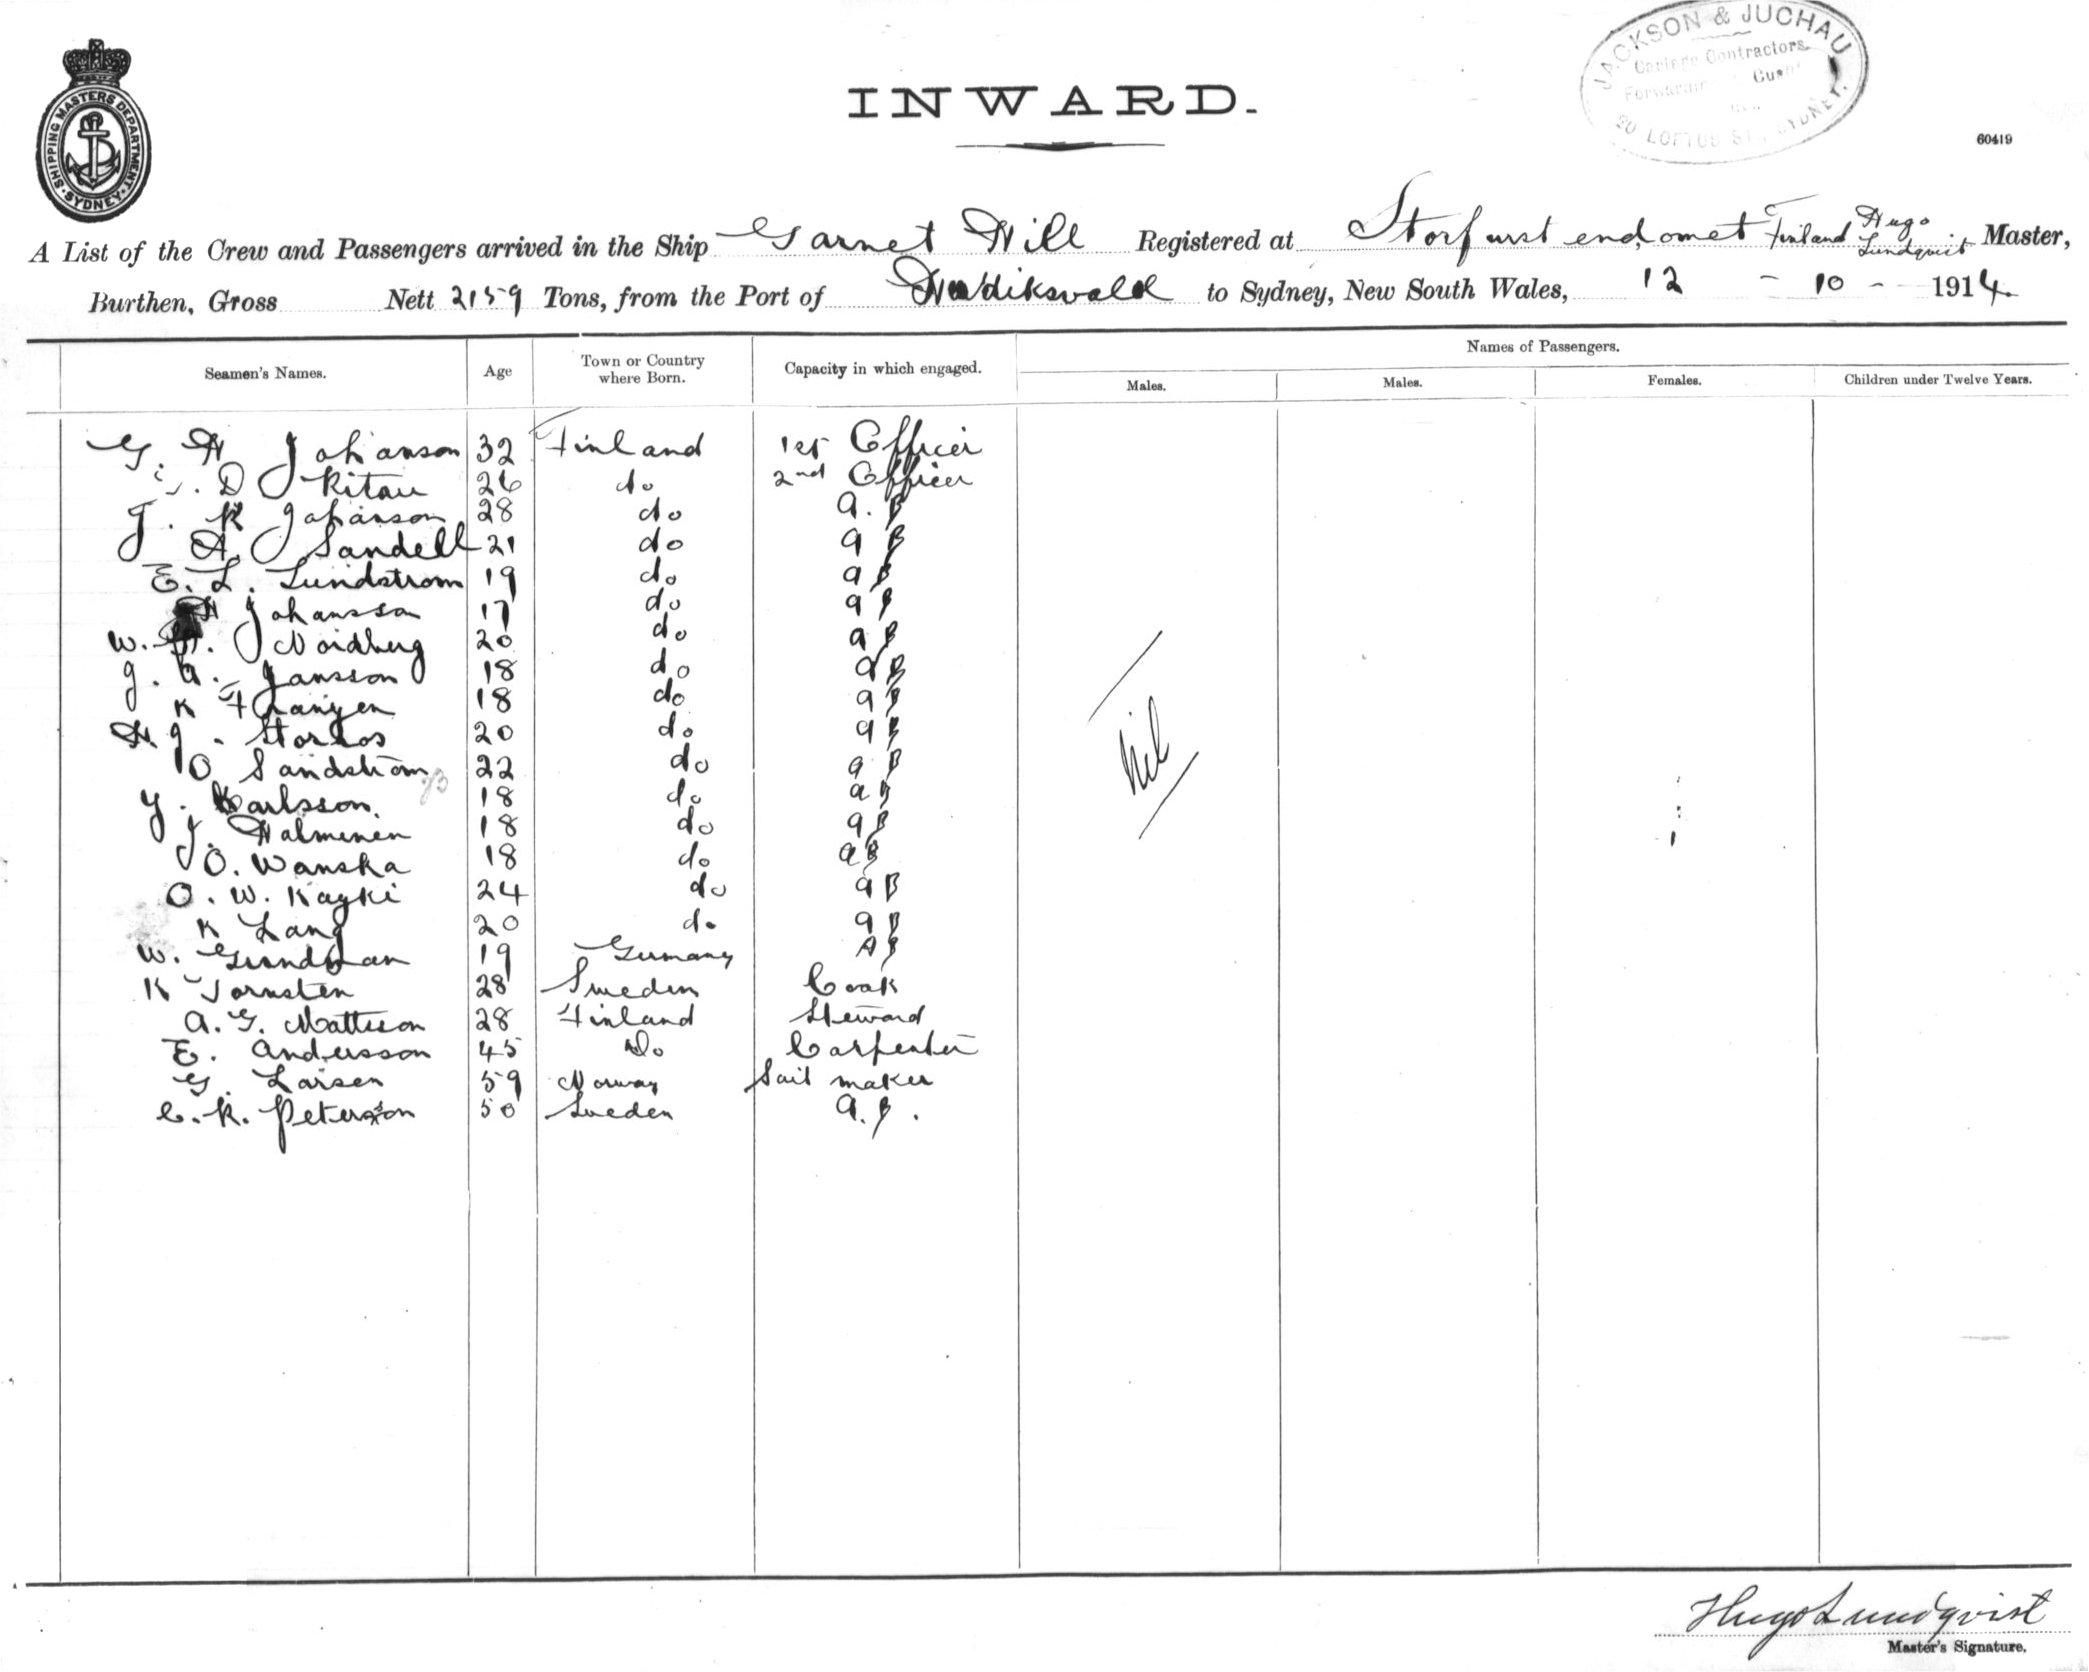 SHIPPING MASTERS DEPARTMENT
SYDNEY
INWARD.
JACKSON & JUCHAU
Contractors
20 LOFTUS ST., SYDNEY.
60419
A List of the Crew and Passengers arrived in the Ship Garnet Hill Registered at Storfurstendomet Finland Hugo Lundqvist Master,
Burthen, Gross Nett 2159 Tons, from the Port of to Sydney, New South Wales, 12 - 10 - 1914.
Seamen's Names. Age Town or Country where Born. Capacity in which engaged. Names of Passengers.
Males. Males. Females. Children under Twelve Years.
G. H Johanson 32 Finland 1st Officer
D 26 do 2nd Officer
J. K Johanson 28 do A.B
J A. Sandell 21 do AB
E. L. Lundstrom 19 do AB
H Johansson 17 do AB
W. Nordberg 20 do AB
J. A. Jansson 18 do AB
K F 18 do AB
H. J. 20 do AB
O Sandstrom 22 do AB
Y. Karlsson 18 do AB
J. Halminen 18 do AB
O. Wanska 18 do AB
O. W. Kayki 24 do AB
K Lang 20 do AB
W. 19 Germany AB
K Tornsten 28 Sweden Cook
A. G. Mattson 28 Finland Steward
E. Andersson 45 Do Carpenter
G. Larsen 59 Norway Sail maker
C. R. Petersson 50 Sweden A.B.
Nil
Hugo Lundqvist
Master's Signature.